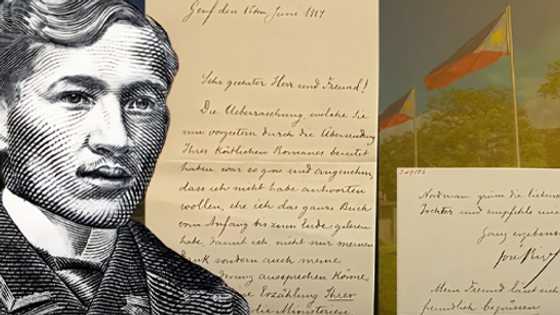 Genf den June
Sehr geehrter Herr und Freund!
Die Ueberraschung, welche Sie
mir vorgestern durch die Übersendung
Ihres köstlichen Romanes bereitet
haben war so gross und angenehm,
dass ich nicht habe antworten
wollen, ehe ich das ganze Buch
vom Anfang bis zum Ende gelesen
habe, damit ich nicht nur meinen
Dank sondern auch meine
aussprechen könne.
Erzählung Ihrer
die Ministerien
die lieben
Tochter und empfehle
Ganz ergebens
Mein Freund lässt sich
freundlich begrüssen